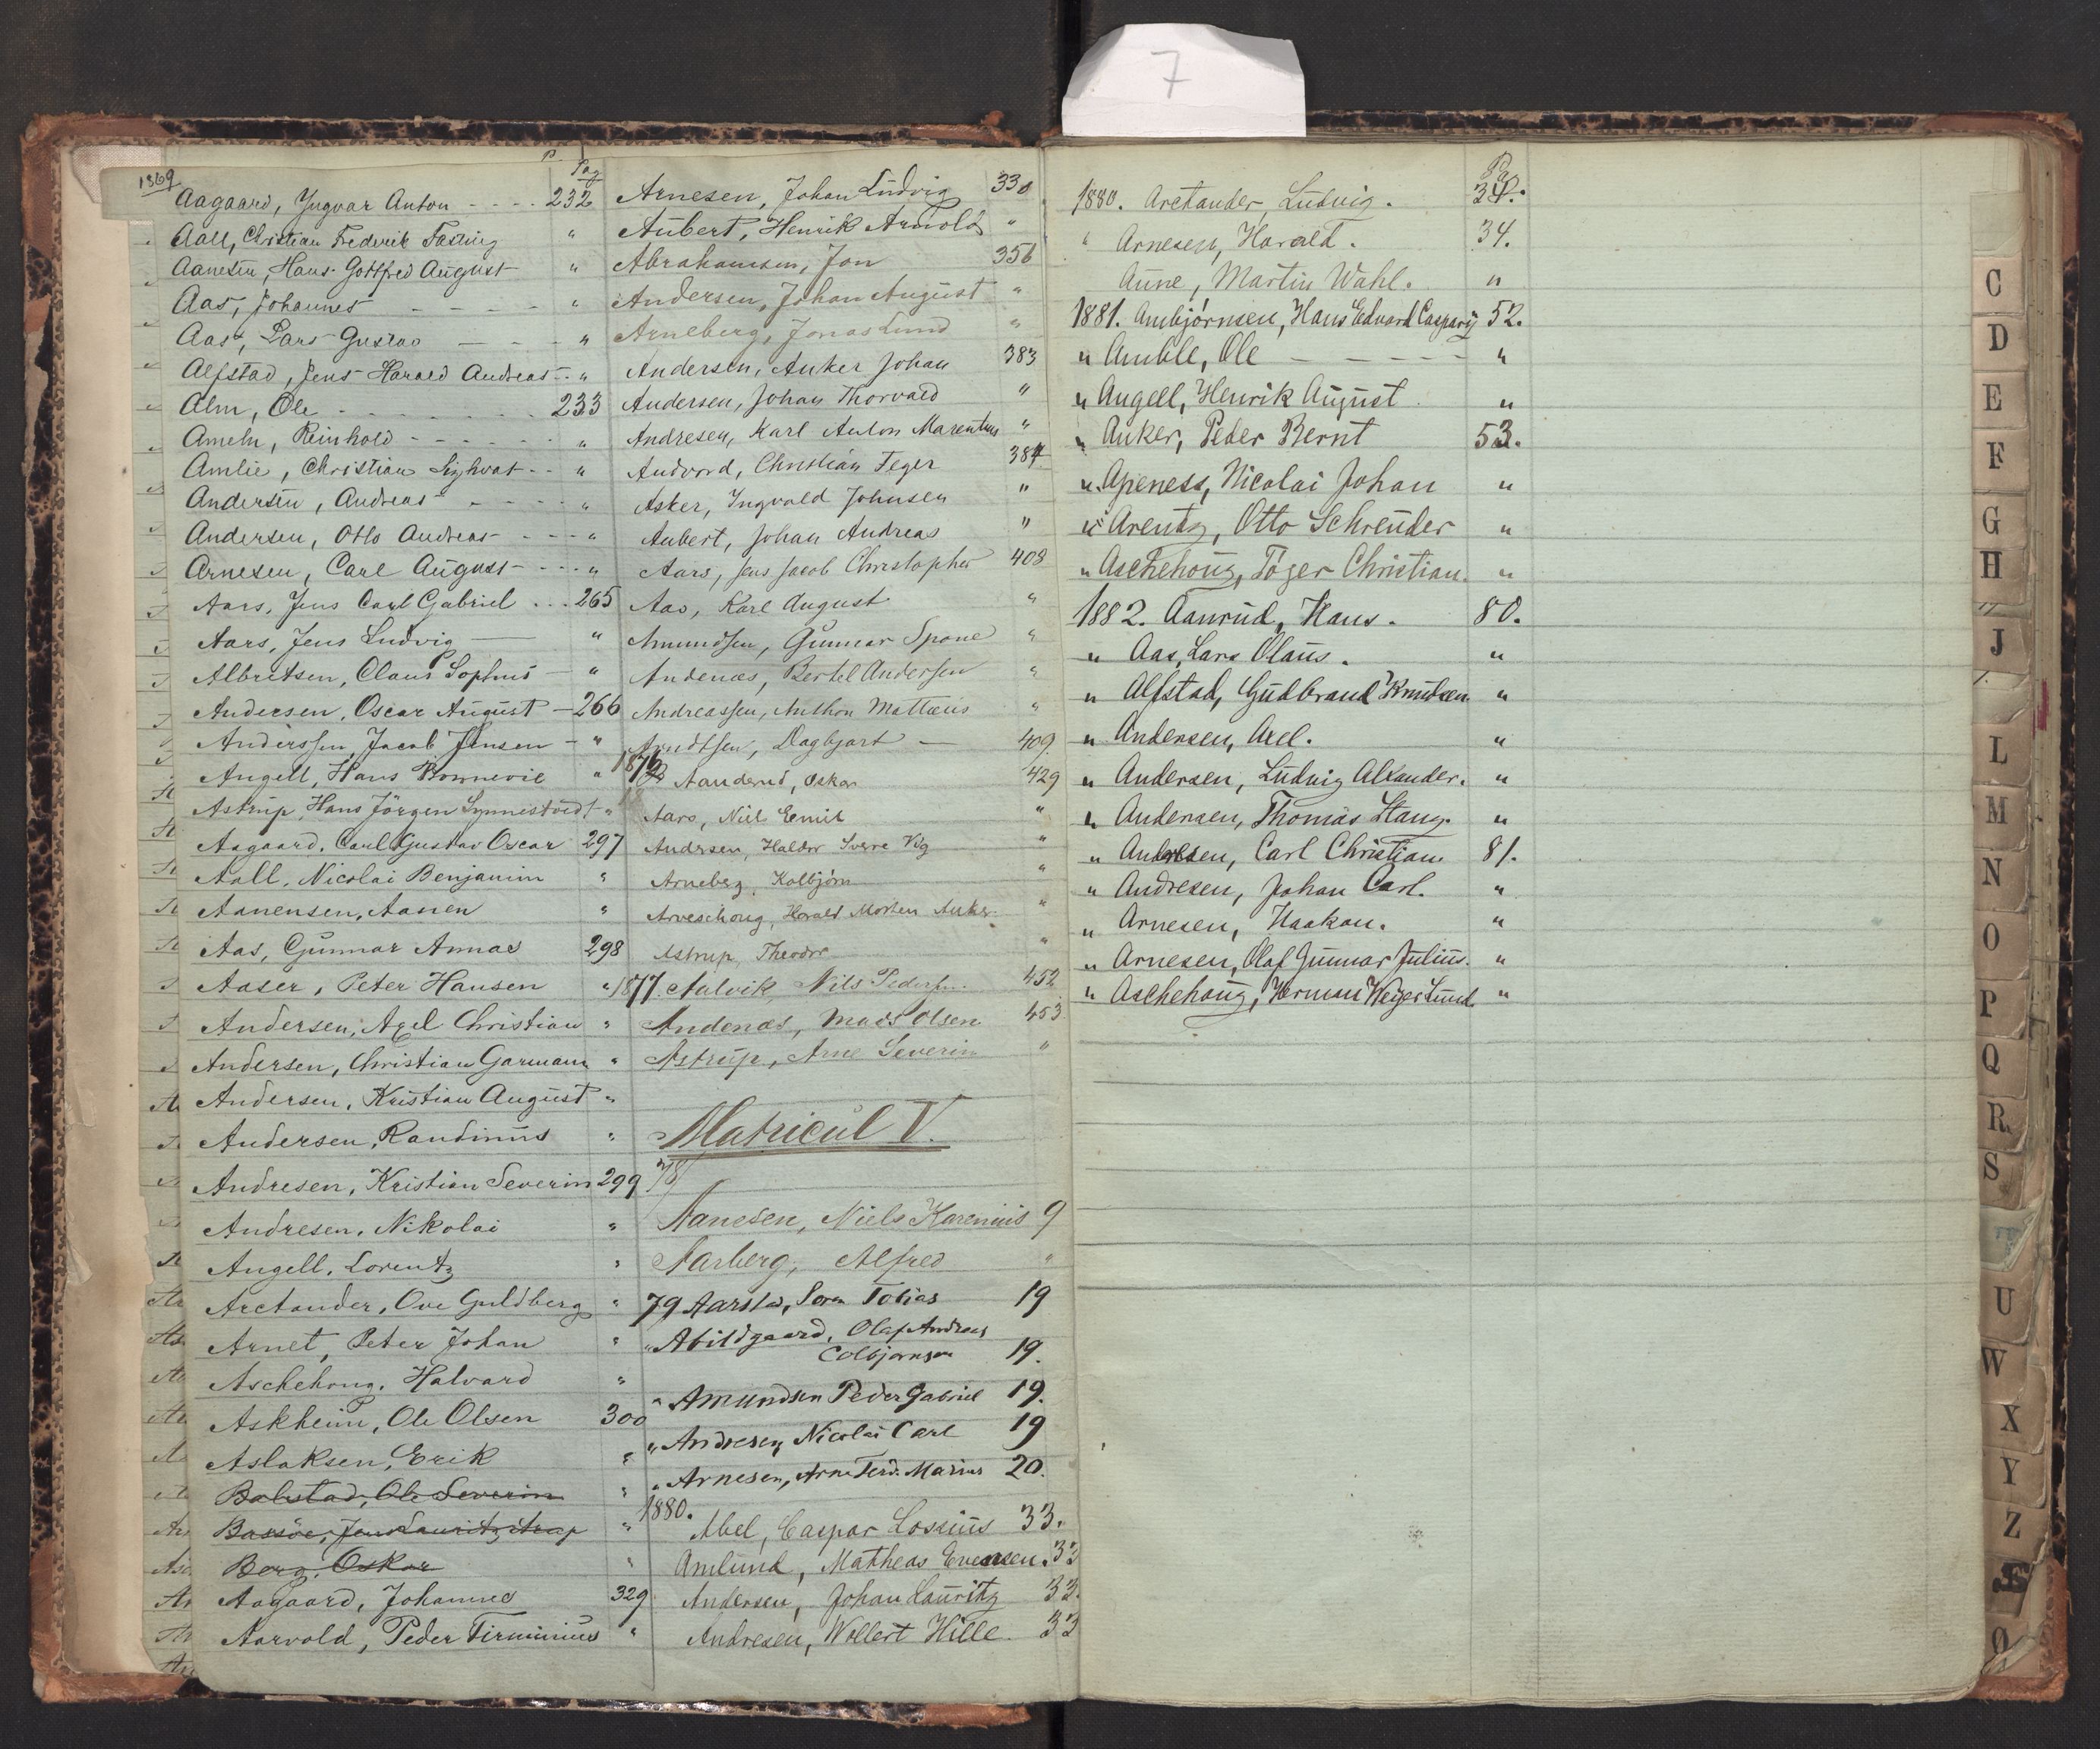 7
1869
Pag
Aagaard, Yngvar Anton - - - - 232
Aall, Christian Frederik Fasting "
Aanesen, Hans Gottfred August "
Aas, Johannes - - - - "
Aas, Lars Gustav - - - "
Alfstad, Jens Harald Andreas - - "
Alm, Ole - - - - - - - 233
Ameln, Reinhold - - - - - - "
Amlie, Christian Sighvat - - "
Andersen, Andreas - - - - - "
Andersen, Otto Andreas - - - - "
Arnesen, Carl August - - - - "
Aars, Jens Carl Gabriel . . . 265
Aars, Jens Ludvig — "
Albretsen, Claus Sophus - "
Andersen, Oscar August — 266
Anderssen, Jacob Jensen - "
Angell, Hans Bonnevie "
Astrup, Hans Jörgen Synnestvedt "
Aagaard, Carl Gustav Oscar 297
Aall, Nicolai Benjamin "
Aanensen, Aanen "
Aas, Gunnar Annas 298
Aaser, Peter Hansen "
Andersen, Axel Christian "
Andersen, Christian Garmann "
Andersen, Kristian August "
Andersen, Randinius "
Andresen, Kristian Severin 299
Andresen, Nikolai "
Angell, Lorentz "
Arctander, Ove Guldberg "
Arnet, Peter Johan "
Aschehoug, Halvard "
Askheim, Ole Olsen 300
Aslaksen, Erik "
Balstad, Ole Severin "
Bassöe, Jens Lauritz "
Berg, Oskar "
Aagaard, Johannes 329
Aarvold, Peder Firminius "
Arnesen, Johan Ludvig 330
Aubert, Henrik Arnold "
Abrahamsen, Jon 356
Andersen, Johan August "
Arneberg, Jonas Lund "
Andersen, Anker Johan 383
Andersen, Johan Thorvald "
Andresen, Karl Anton Marentius "
Andvord, Christian Feger 384
Asker, Ingvald Johnsen "
Aubert, Johan Andreas "
Aars, Jens Jacob Christopher 408
Aas, Karl August "
Amundsen, Gunnar Spone "
Andenæs, Bertel Andersen "
Andreassen, Anthon Mattæus "
Arndtsen, Dagbjart — 409.
1876 Aanderud, Oskar 429
Aars, Niel Emil "
Andersen, Haldor Sverre Vig "
Arneberg, Kolbjörn "
Harald Morten Anker "
Astrup, Theodor "
1877. Aalvik, Nils Pedersen 452
Andenæs, Mads Olsen 453
Astrup, Arne Severin "
Matricul V.
78
Aanesen, Niels Karenius 9
Aarberg, Alfred "
79 Aarstad, Søren Tobias 19
" Abildgaard, Olaf Andreas
Colbjørnsen 19.
" Amundsen Peder Gabriel 19.
" Andresen, Nicolai Carl 19
" Arnesen, Arne Ferd. Marius 20.
1880.
Abel, Caspar Lossius 33.
Amlund, Matheas Evensen. 33
Andersen, Johan Lauritz 33.
Andresen, Wollert Hille. 33
Pag
1880. Arctander, Ludvig. 34.
" Arnesen, Harald. 34.
Aune, Martin Wahl. "
1881. Ambjørnsen, Hans Edvard Caspary 52.
" Amble, Ole — — — — "
" Angell, Henrik August "
" Anker, Peder Bernt 53.
" Apeness, Nicolai Johan "
" Arentz, Otto Schreuder "
" Aschehoug, Töger Christian. "
1882. Aanrud, Hans. 80.
" Aas, Lars Olaus. "
" Alfstad, Gudbrand Knudsen "
" Andersen, Axel. "
" Andersen, Ludvig Alxander. "
" Andersen, Thomas Stang. "
" Andresen, Carl Christian. 81.
" Andresen, Johan Carl. "
" Arnesen, Haakon. "
" Arnesen, Olaf Gunnar Julius. "
" Aschehoug, Herman Weyer Lund "
C
D
E
F
G
H
J
L
M
N
O
P
Q
R
S
U
W
X
Y
Z
Æ
Ø